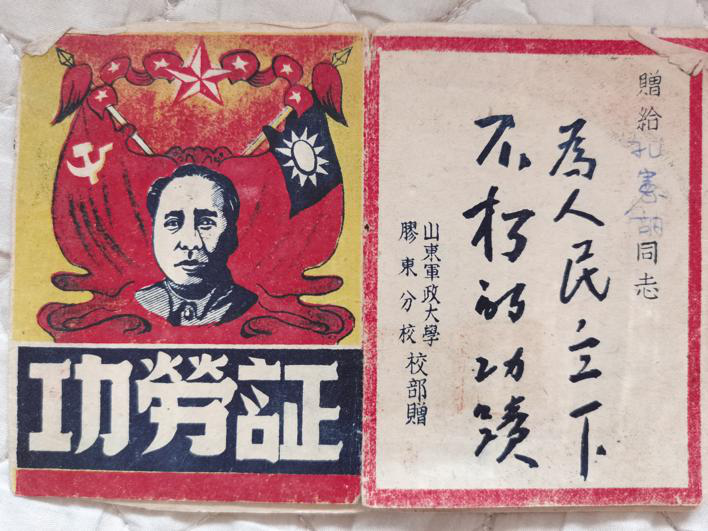 功勞証
贈給孔憲韶同志
為人民立下
不朽的功蹟
山東軍政大學
膠東分校校部贈